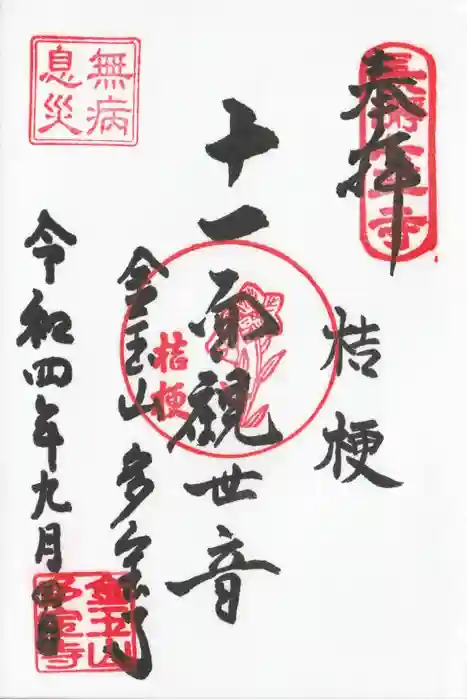 奉拝
桔梗
十一面観世音
桔梗
金玉山 多宝寺
無病
息災
令和四年九月四日
金玉山
多宝寺